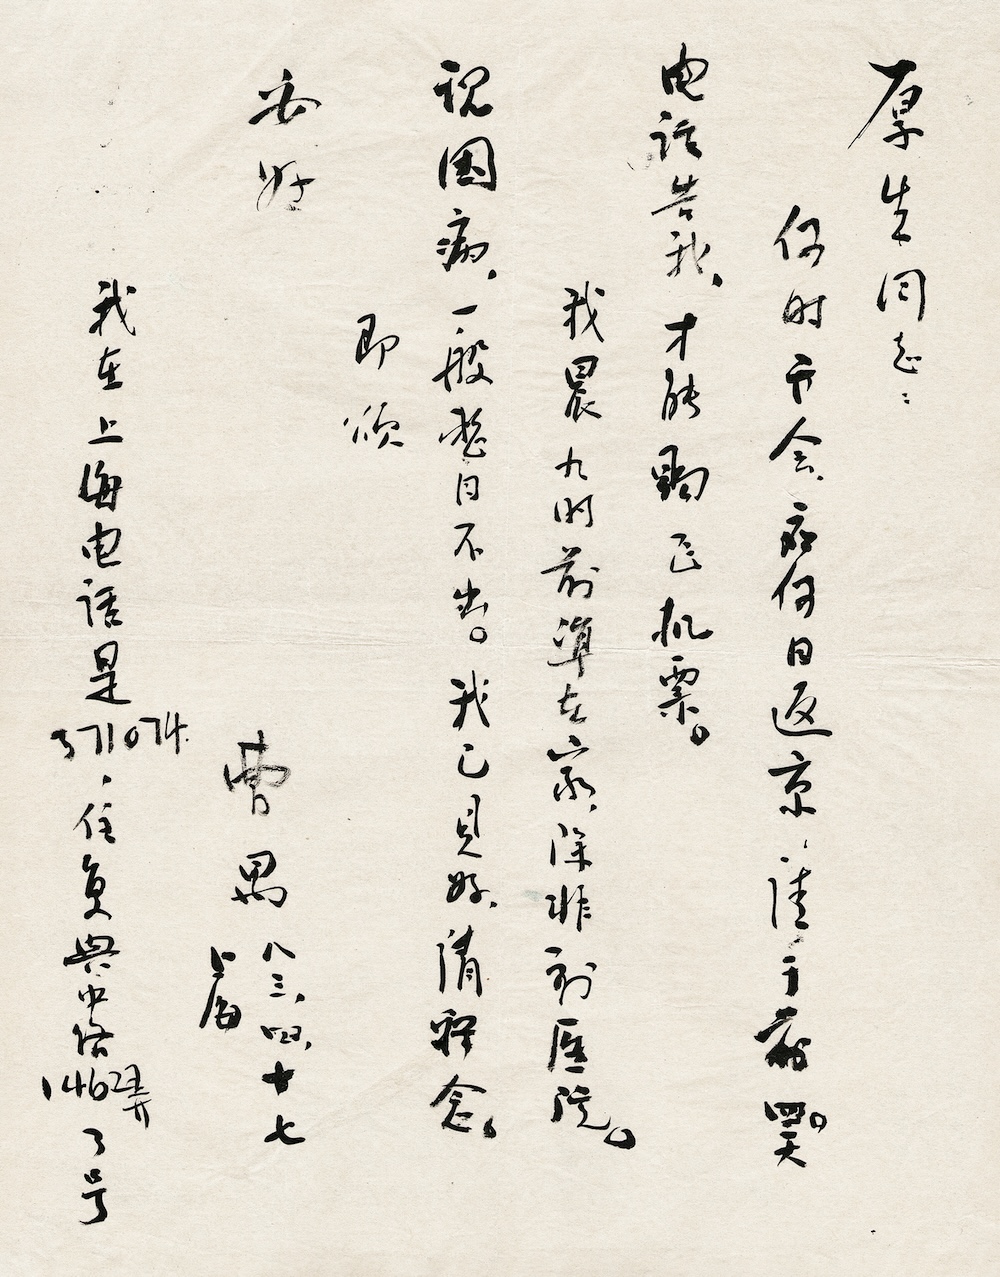 厚生同志：
何时开会，或何日返京，请于前四天。
电话告我，才能购飞机票。
我晨九时前准在家，除非到医院。
视国病，一般整日不出。我已见好，请释念。
即颂
安好
曹禺 八三，四，十七
上海
我在上海电话是371074.，住复兴中路1462弄3号